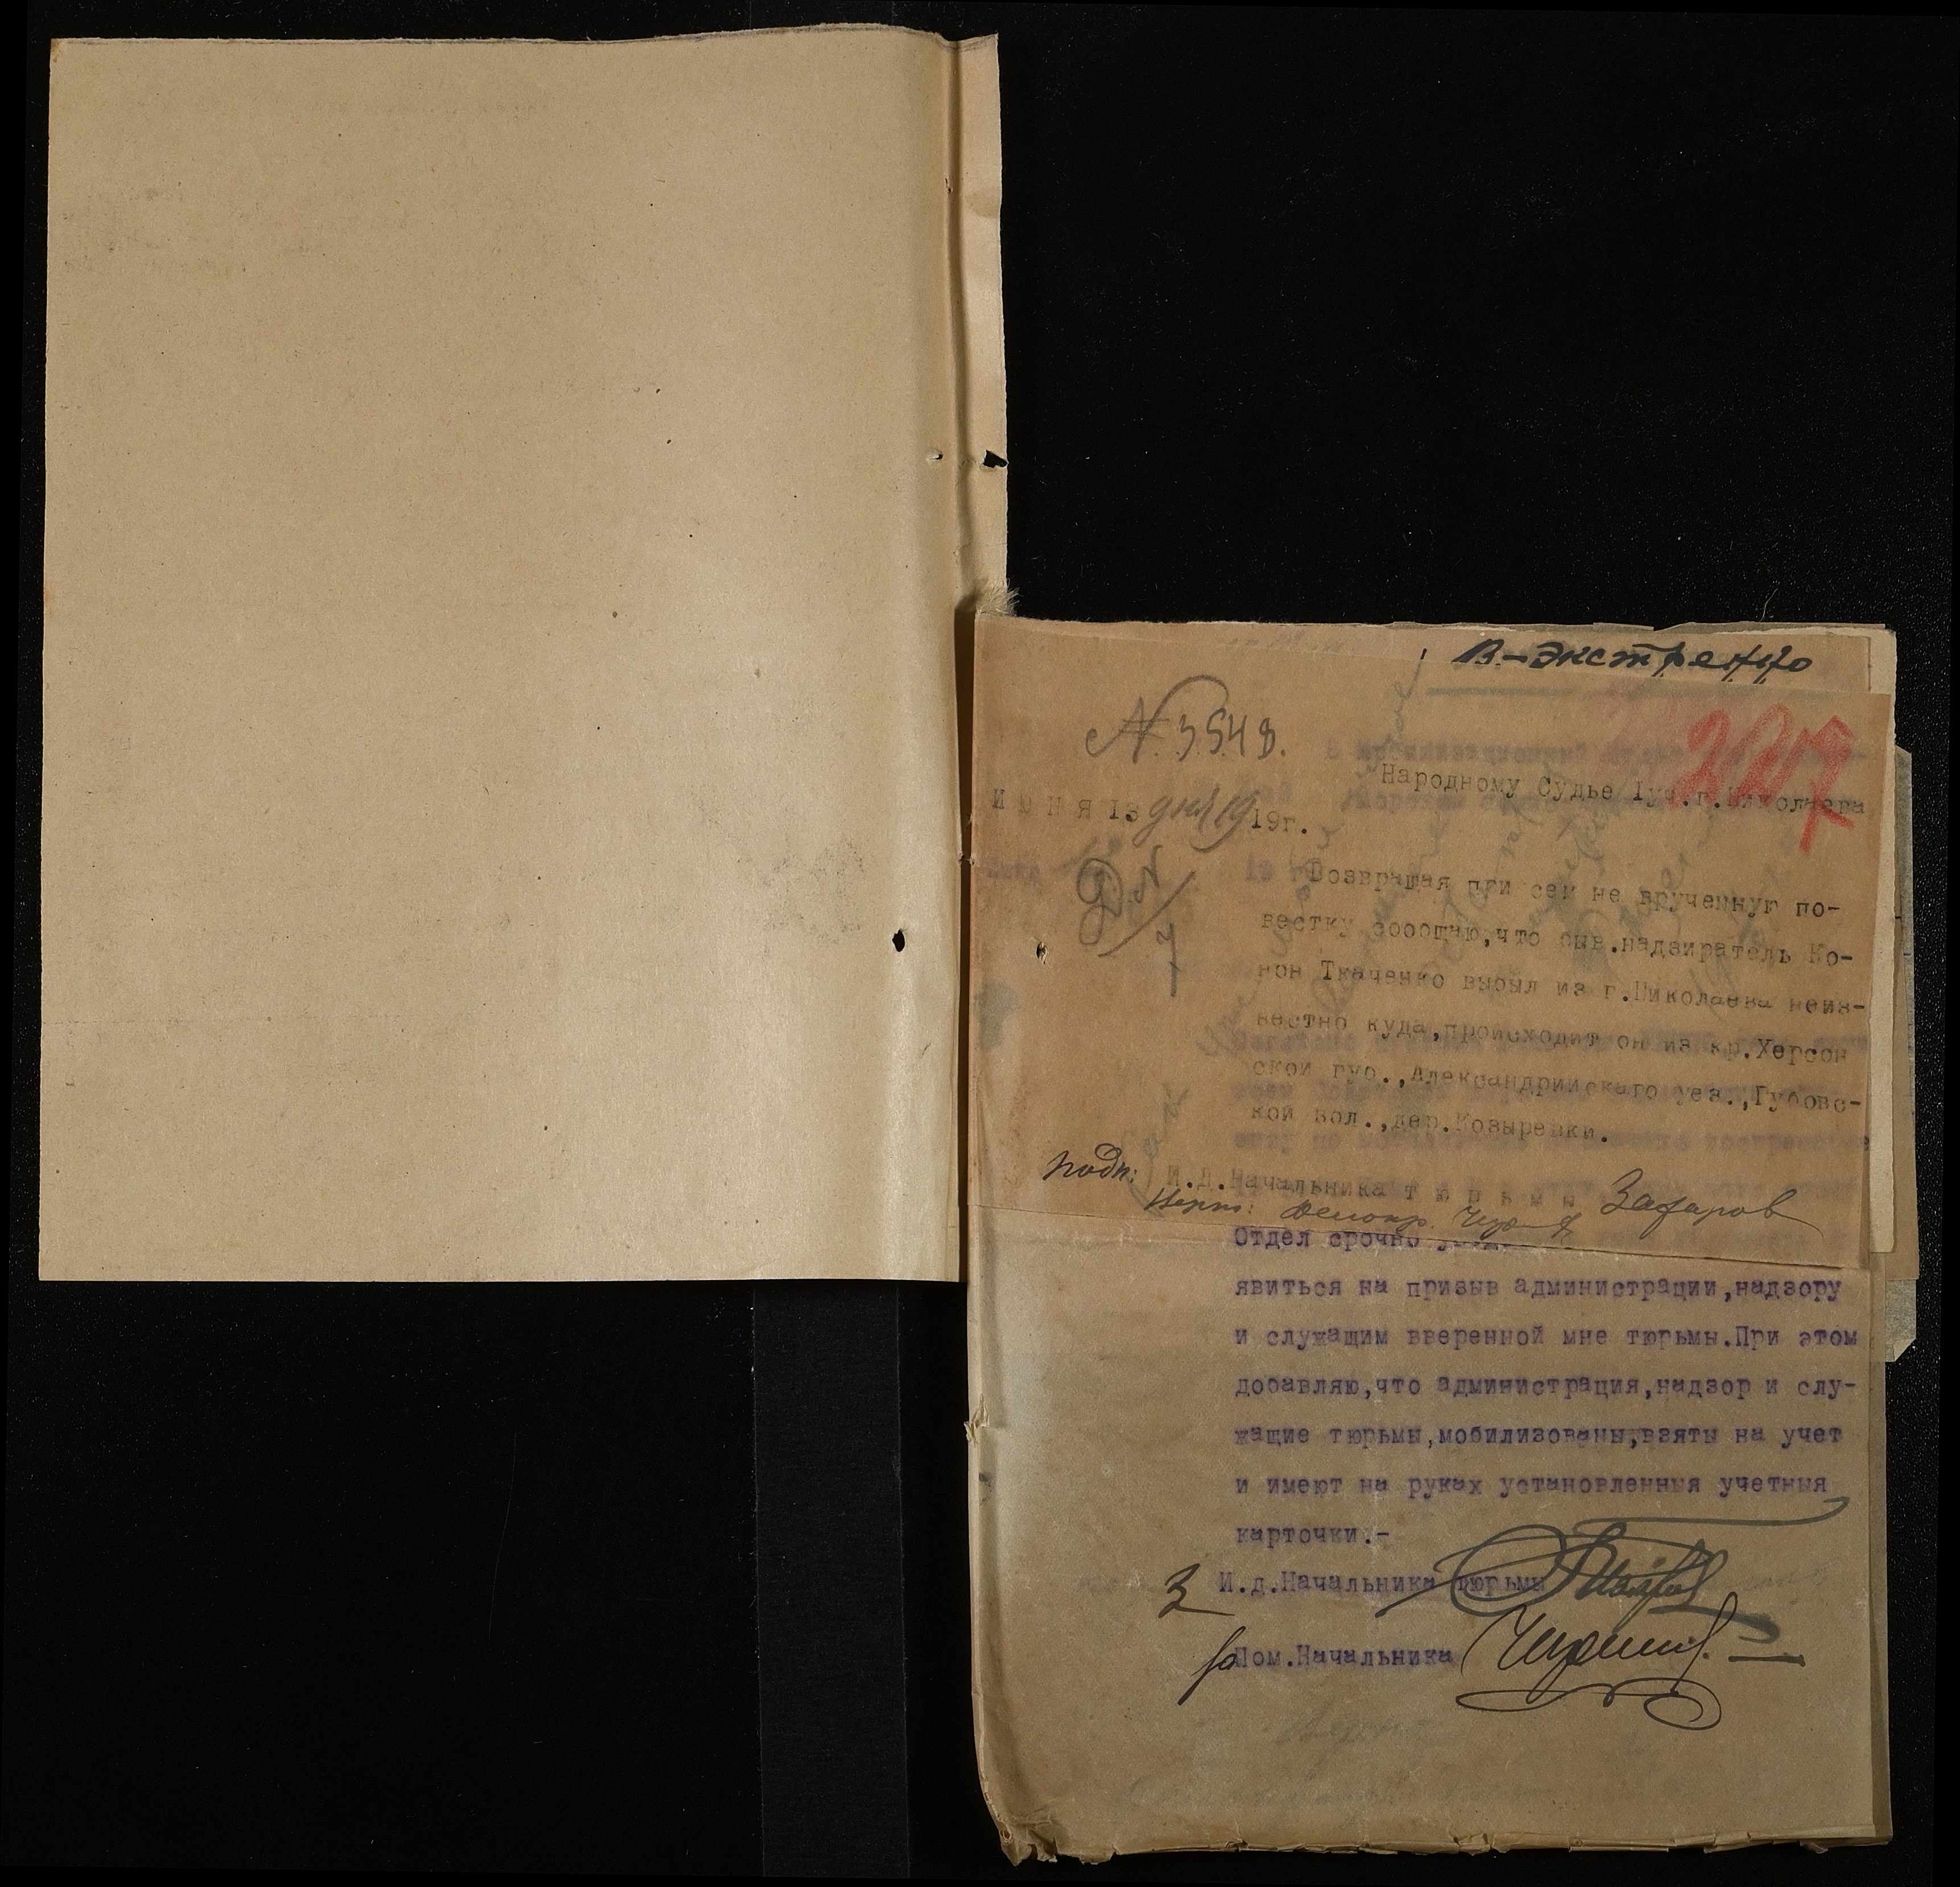 В-Экстренно
№ 3548.
227
Народному Судье 1уч.г.Николаева
И Ю Н Я 13 дня 19 19г.
Д. №
7
Возвращая при сем не врученную по-
вестку сообщаю,что быв.надзиратель Ко-
нон Ткаченко выбыл из г.Николаева неиз-
вестно куда,происходит он из кр.Херсон
ской губ.,Александрийскаго уез.,Губовс-
кой вол.,дер.Козыревки.
подп: И.Д.Начальника т ю р ь м ы Захаров
Верно: Делопр.
Отдел срочно
явиться на призыв администрации,надзору
и служащим вверенной мне тюрьмы.При этом
добавляю,что администрация,надзор и слу-
жащие тюрьмы,мобилизованы,взяты на учет
и имеют на руках установленныя учетныя
карточки.-
З И.д.Начальника тюрьмы
Пом.Начальника